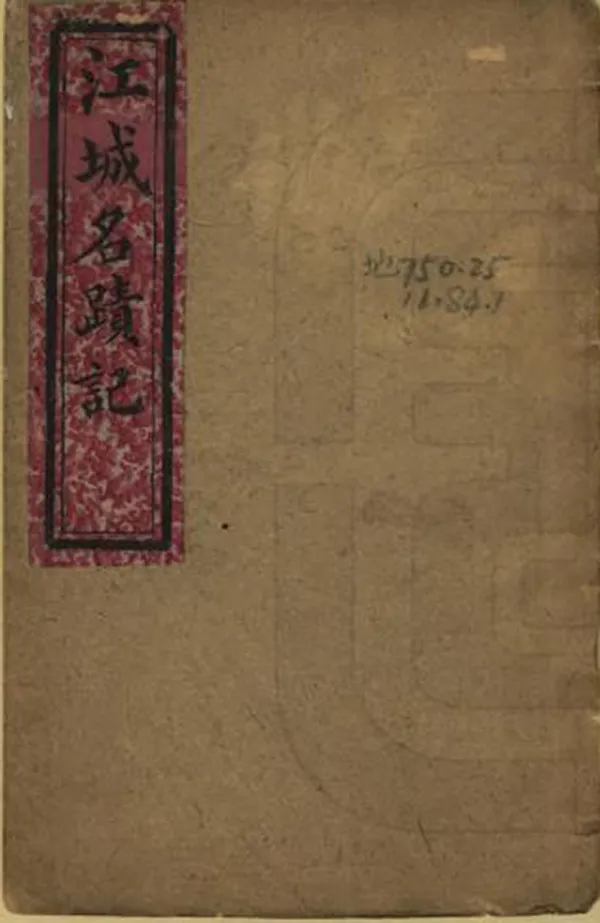 江城名蹟記
地750.25
11.84.1